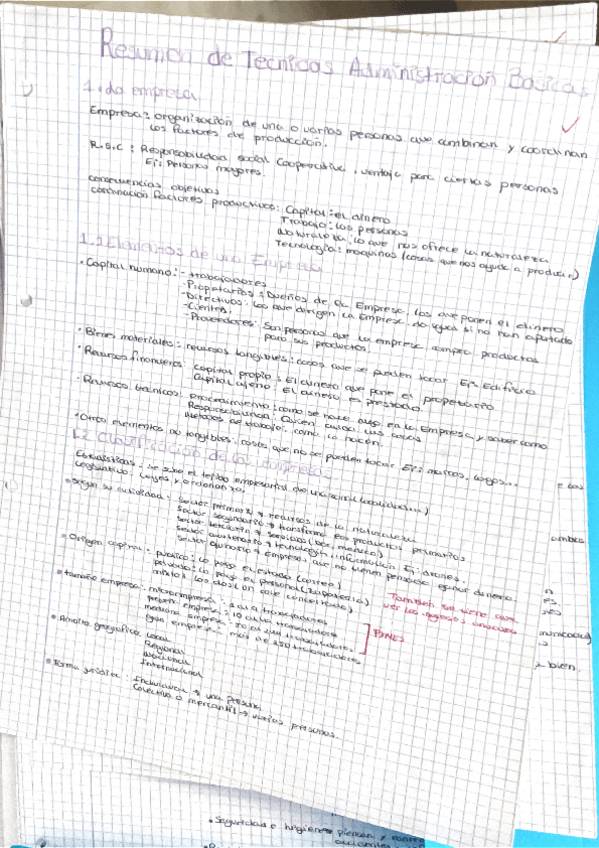 Resumen de Tecnicas Administración Básicas
1. La empresa
Empresa: organización de una o varias personas que combinan y coordinan
los factores de producción.
R.S.C: Responsabilidad social Cooperative, ventaja para ciertas personas
Ej: Personas mayores.
consecuencias objetivos
coordinación factores productivos: Capital: el dinero
Trabajo: las personas
Naturaleza: lo que nos ofrece la naturaleza
Tecnología: maquinas (cosas que nos ayuda a producir)
1.1 Elementos de una Empresa
• Capital humano: - trabajadores
- Propietarios: Dueños de la Empresa, los que ponen el dinero
- Directivos: los que dirigen la Empresa, si no han aportado
- Clientes.
- Proveedores: Son personas que la empresa compra productos
para sus productos.
• Bienes materiales: recursos tangibles: cosas que se pueden tocar Ej: Edificio
• Recursos financieros: capital propio: El dinero que pone el propetario
Capital ajeno: El dinero es prestado
• Recursos técnicos: procedimiento: como se hace algo en la Empresa y saber como
Responsabilidad: Quien las cosas
Metodos de trabajo: como lo hacen.
• Otros elementos no tangibles: cosas que no se pueden tocar Ej: marcas, logos...
1.2 Clasificación de las empresas
Estadísticas: se sabe el tejido empresarial de una zona (localidad...)
Legislativo: Leyes y ordenanza.
• Según su actividad: sector primario → recursos de la naturaleza
Sector secundario → transforma los productos primarios
Sector terciario → servicios (bar, medico)
Sector cuaternario → tecnología, información Ej: drones.
Sector quinario → empresas que no tienen pensado ganar dinero.
• Origen capital: publico: lo paga el estado (correos)
privado: lo paga el personal (zapatería)
mixta: los dos (un cole concertado)
También se tiene que
ver los negocios anuales
• tamaño empresa: microempresa: 1 a 9 trabajadores
pequeña empresa: 10 a 49 trabajadores
mediana empresa: 50 a 249 trabajadores
gran empresa: más de 250 trabajadores
PYMES
• Ámbito geográfico: Local
Regional
Nacional
Internacional
• Forma jurídica: Individual → una persona
Colectiva o mercantil → varias personas.
bien.
• Seguridad e higiene: piensan y
accidentes